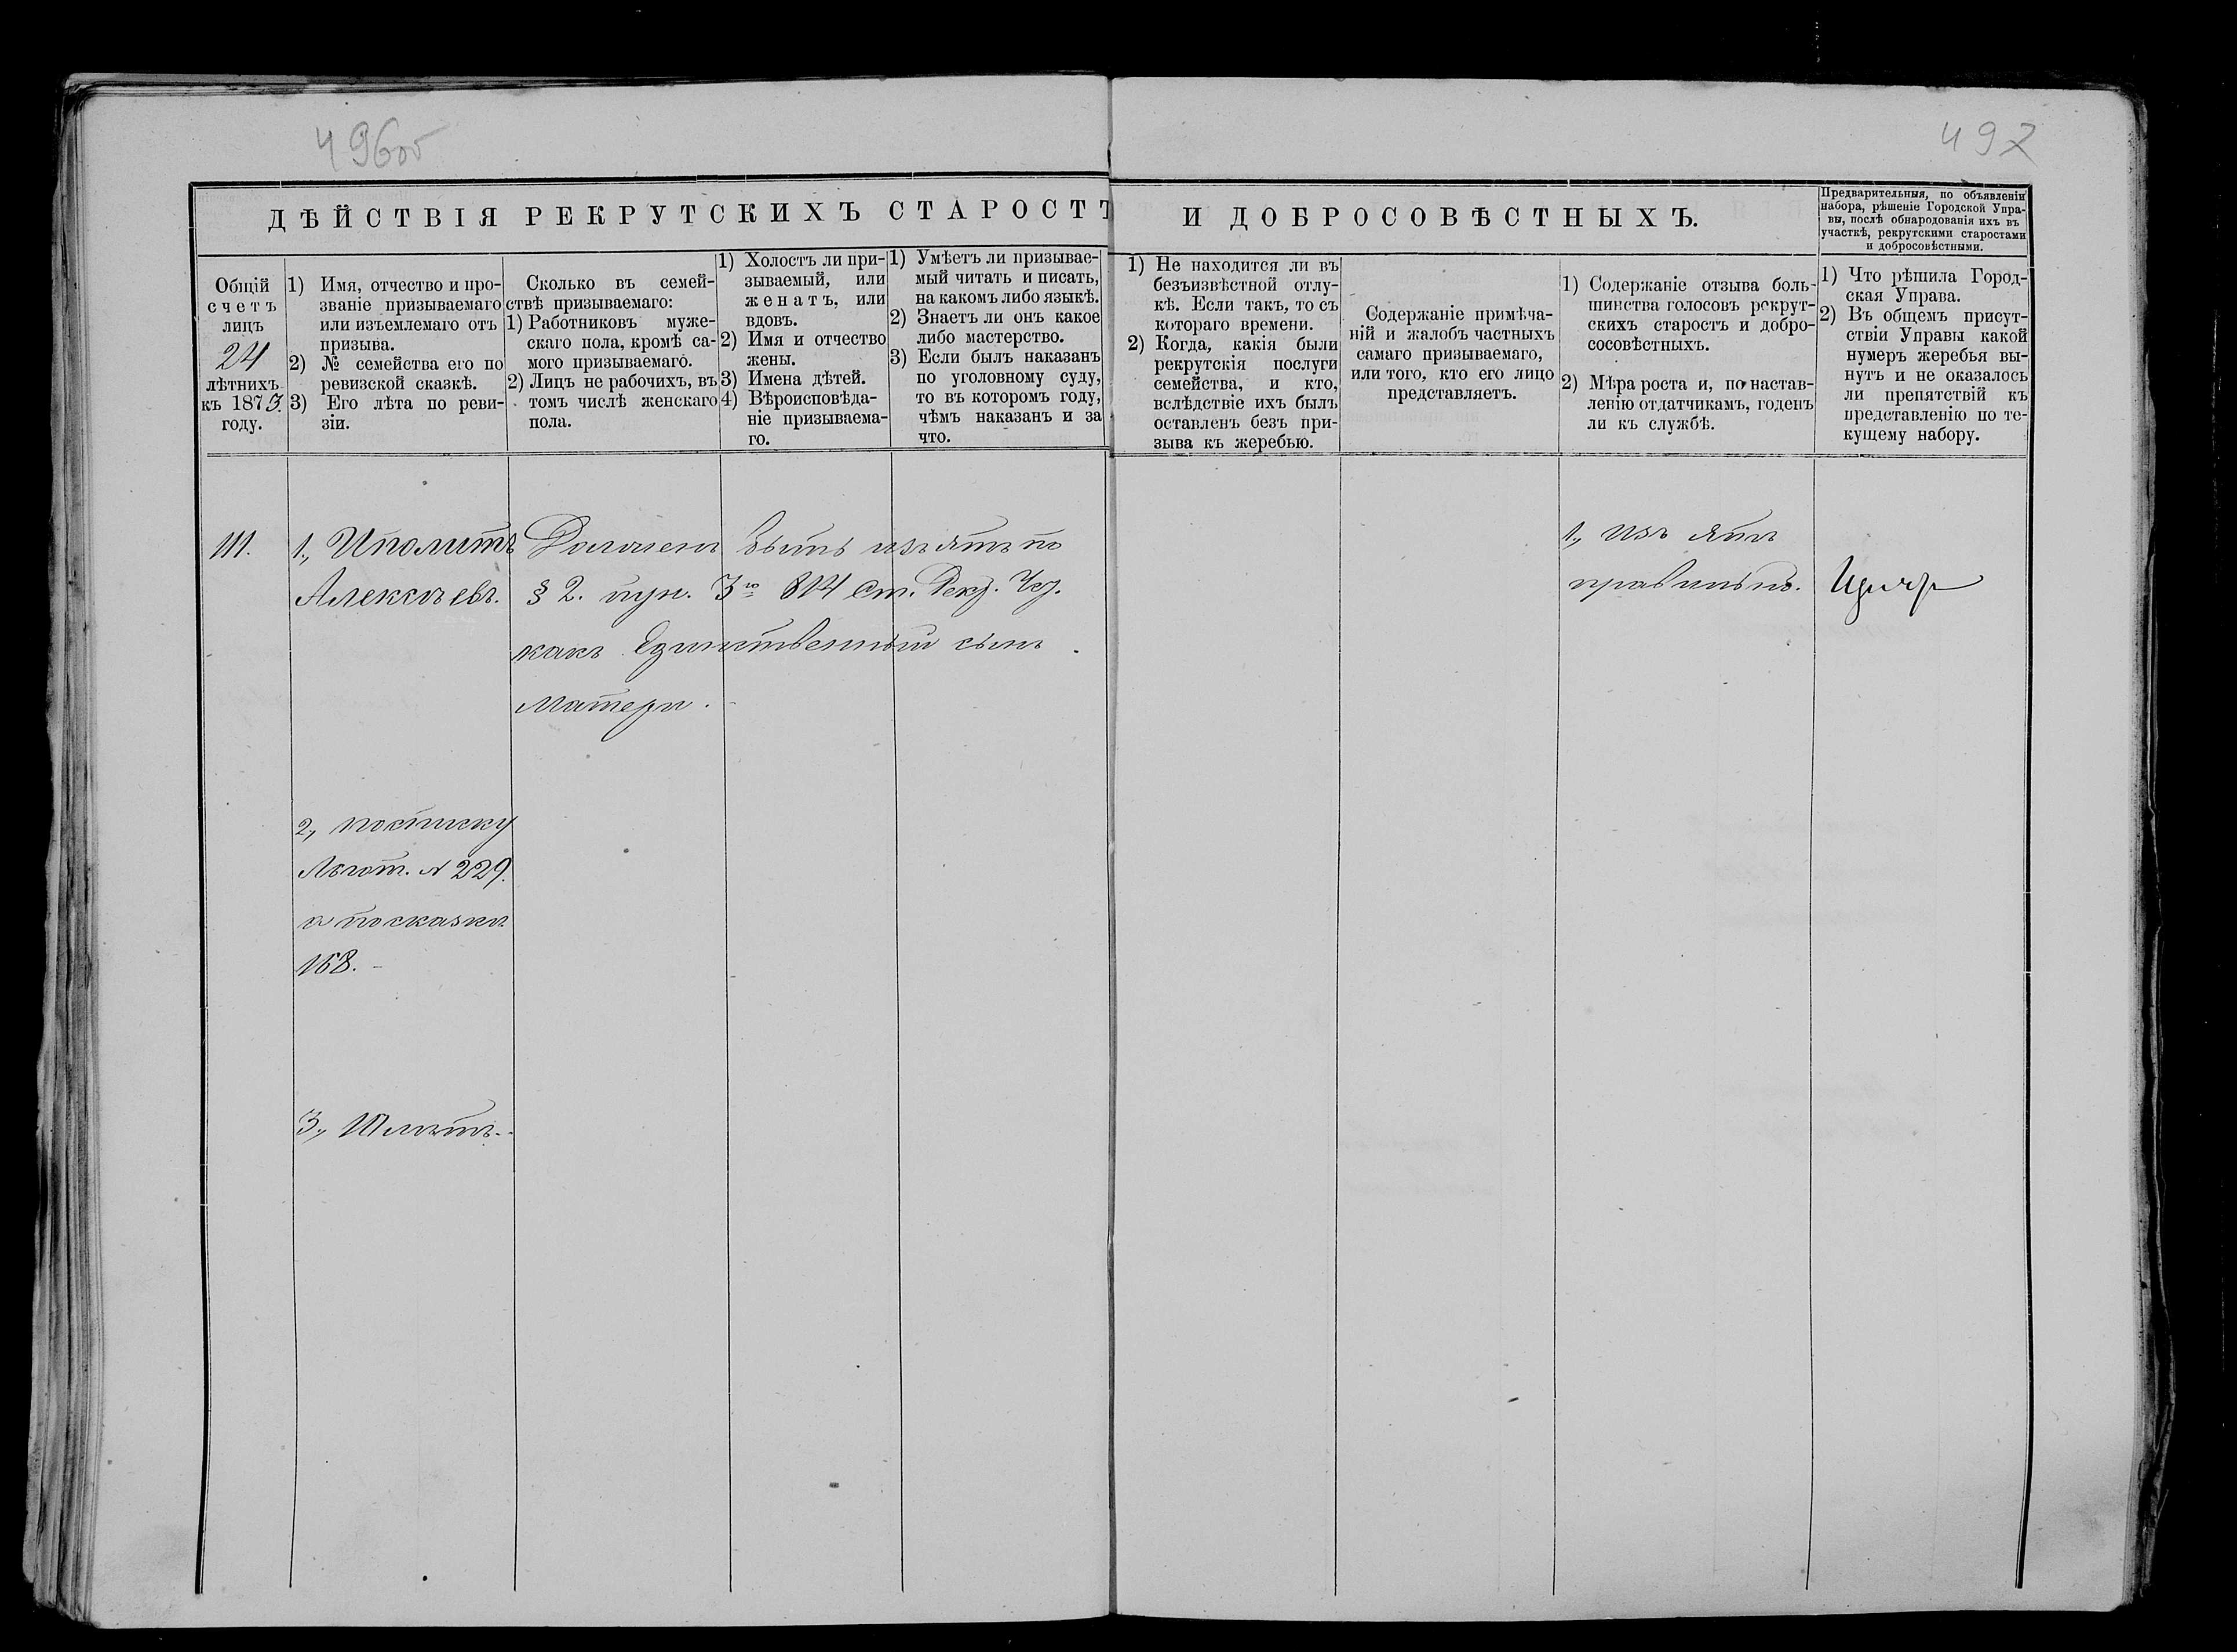 496об
497
ДѢЙСТВІЯ РЕКРУТСКИХЪ СТАРОСТЪ
И ДОБРОСОВѢСТНЫХЪ.
Предварительныя, по объявленіи
набора, рѣшеніе Городской Упра-
вы, послѣ обнародованія ихъ въ
участкѣ, рекрутскими старостами
и добросовѣстными.
Общій
счетъ
лицъ
24
лѣтнихъ
къ 1873.
году.
1) Имя, отчество и про-
званіе призываемаго
или изъемлемаго отъ
призыва.
2) № семейства его по
ревизской сказкѣ.
3) Его лѣта по реви-
зіи.
Сколько въ семей-
ствѣ призываемаго:
1) Работниковъ муже-
скаго пола, кромѣ са-
мого призываемаго.
2) Лицъ не рабочихъ, въ
томъ числѣ женскаго
пола.
1) Холостъ ли при-
зываемый, или
женатъ, или
вдовъ.
2) Имя и отчество
жены.
3) Имена дѣтей.
4) Вѣроисповѣда-
ніе призываема-
го.
1) Умѣетъ ли призывае-
мый читать и писать,
на какомъ либо языкѣ.
2) Знаетъ ли онъ какое
либо мастерство.
3) Если былъ наказанъ
по уголовному суду,
то въ которомъ году,
чѣмъ наказанъ и за
что.
1) Не находится ли въ
безъизвѣстной отлу-
кѣ. Если такъ, то съ
котораго времени.
2) Когда, какія были
рекрутскія послуги
семейства, и кто,
вслѣдствіе ихъ былъ
оставленъ безъ при-
зыва къ жеребью.
Содержаніе примѣча-
ній и жалобъ частныхъ
самаго призываемаго,
или того, кто его лицо
представляетъ.
1) Содержаніе отзыва боль-
шинства голосовъ рекрут-
скихъ старостъ и добро-
сосовѣстныхъ.
2) Мѣра роста и, по настав-
ленію отдатчикамъ, годенъ
ли къ службѣ.
1) Что рѣшила Город-
ская Управа.
2) Въ общемъ присут-
ствіи Управы какой
нумеръ жеребья вы-
нутъ и не оказалось
ли препятствій къ
представленію по те-
кущему набору.
111.
1., Иполитъ
Алексѣевъ.
Должен быть изъятъ по
§ 2. пун. 3го 814 ст. Рекр. Уст.
какъ Единственный сынъ
Матери.
2., по списку
Льгот. № 229.
а по сказкѣ
168.
3., 11 лѣтъ.
1., изъ ятъ
правильно.